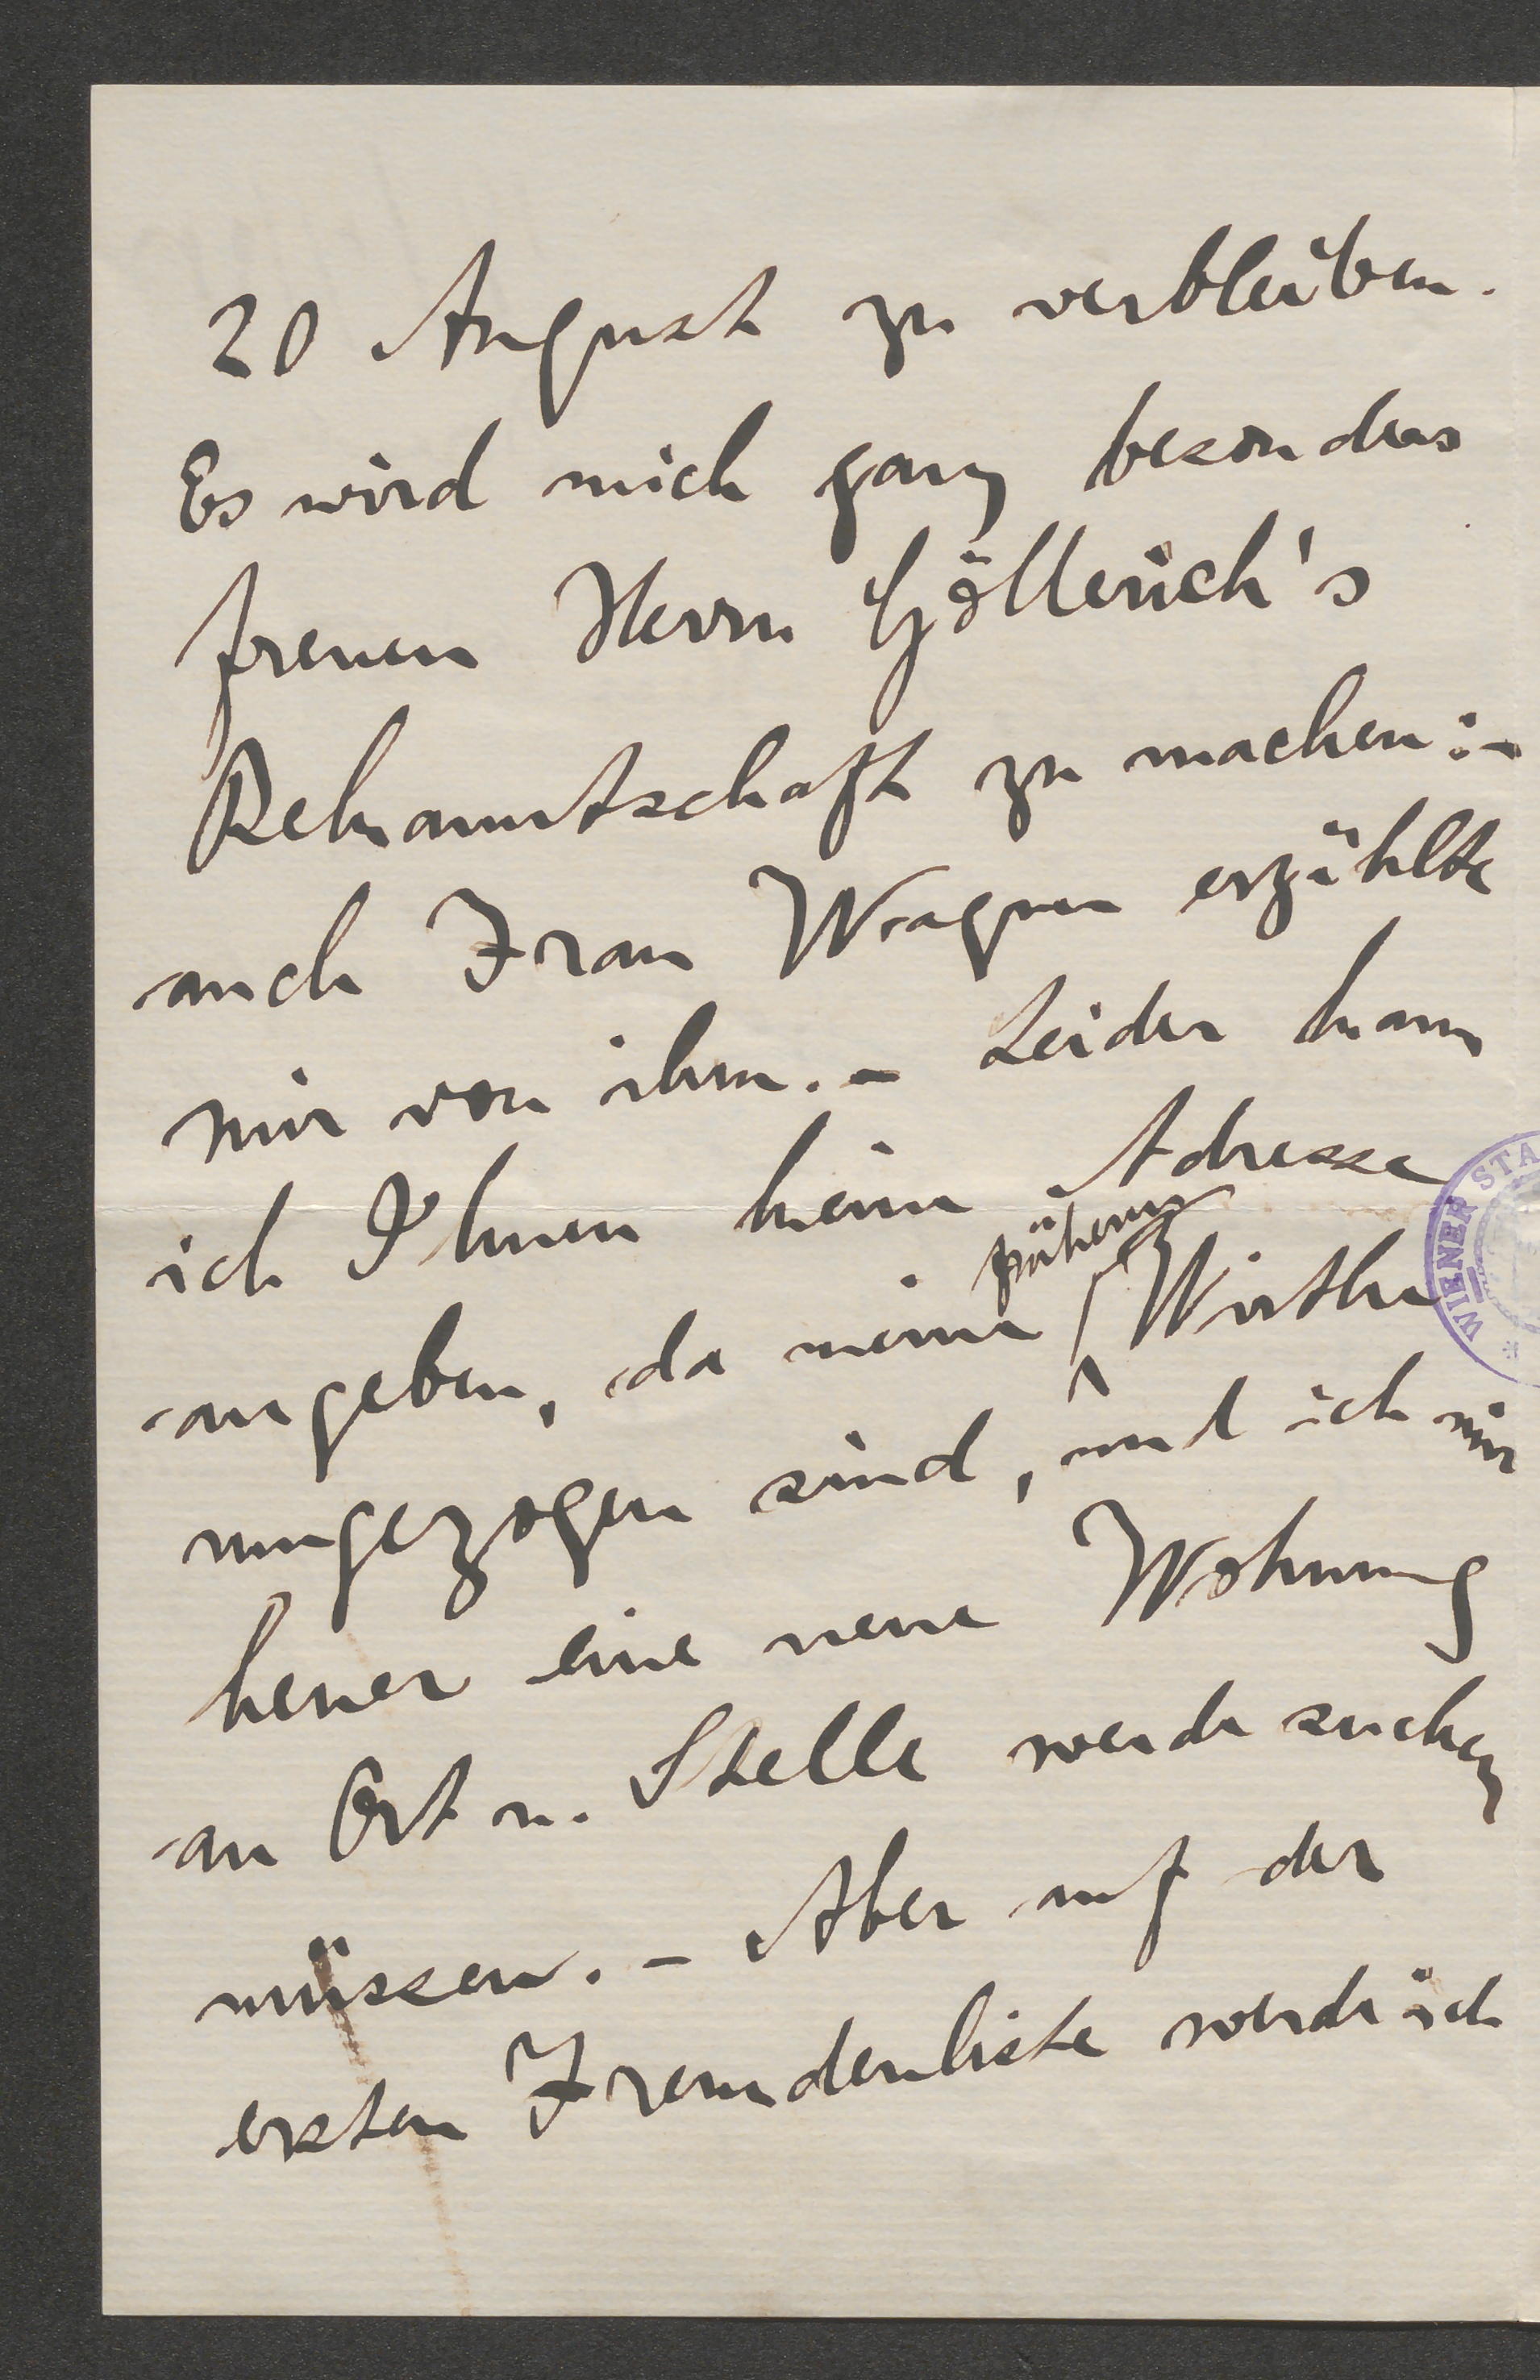 20 August zu verbleiben.
Es wird mich ganz besonders
freuen Herrn Göllerich's
Bekanntschaft zu machen:-
auch Frau Wagner erzählte
mir von ihm. - Leider kann
ich Ihnen keine Adresse
angeben, da meine früheren Wirthe
umgezogen sind, und ich mir
heuer eine neue Wohnung
an Ort u. Stelle werde suchen
müssen. - Aber auf der
ersten Fremdenliste werde ich
WIENER STA